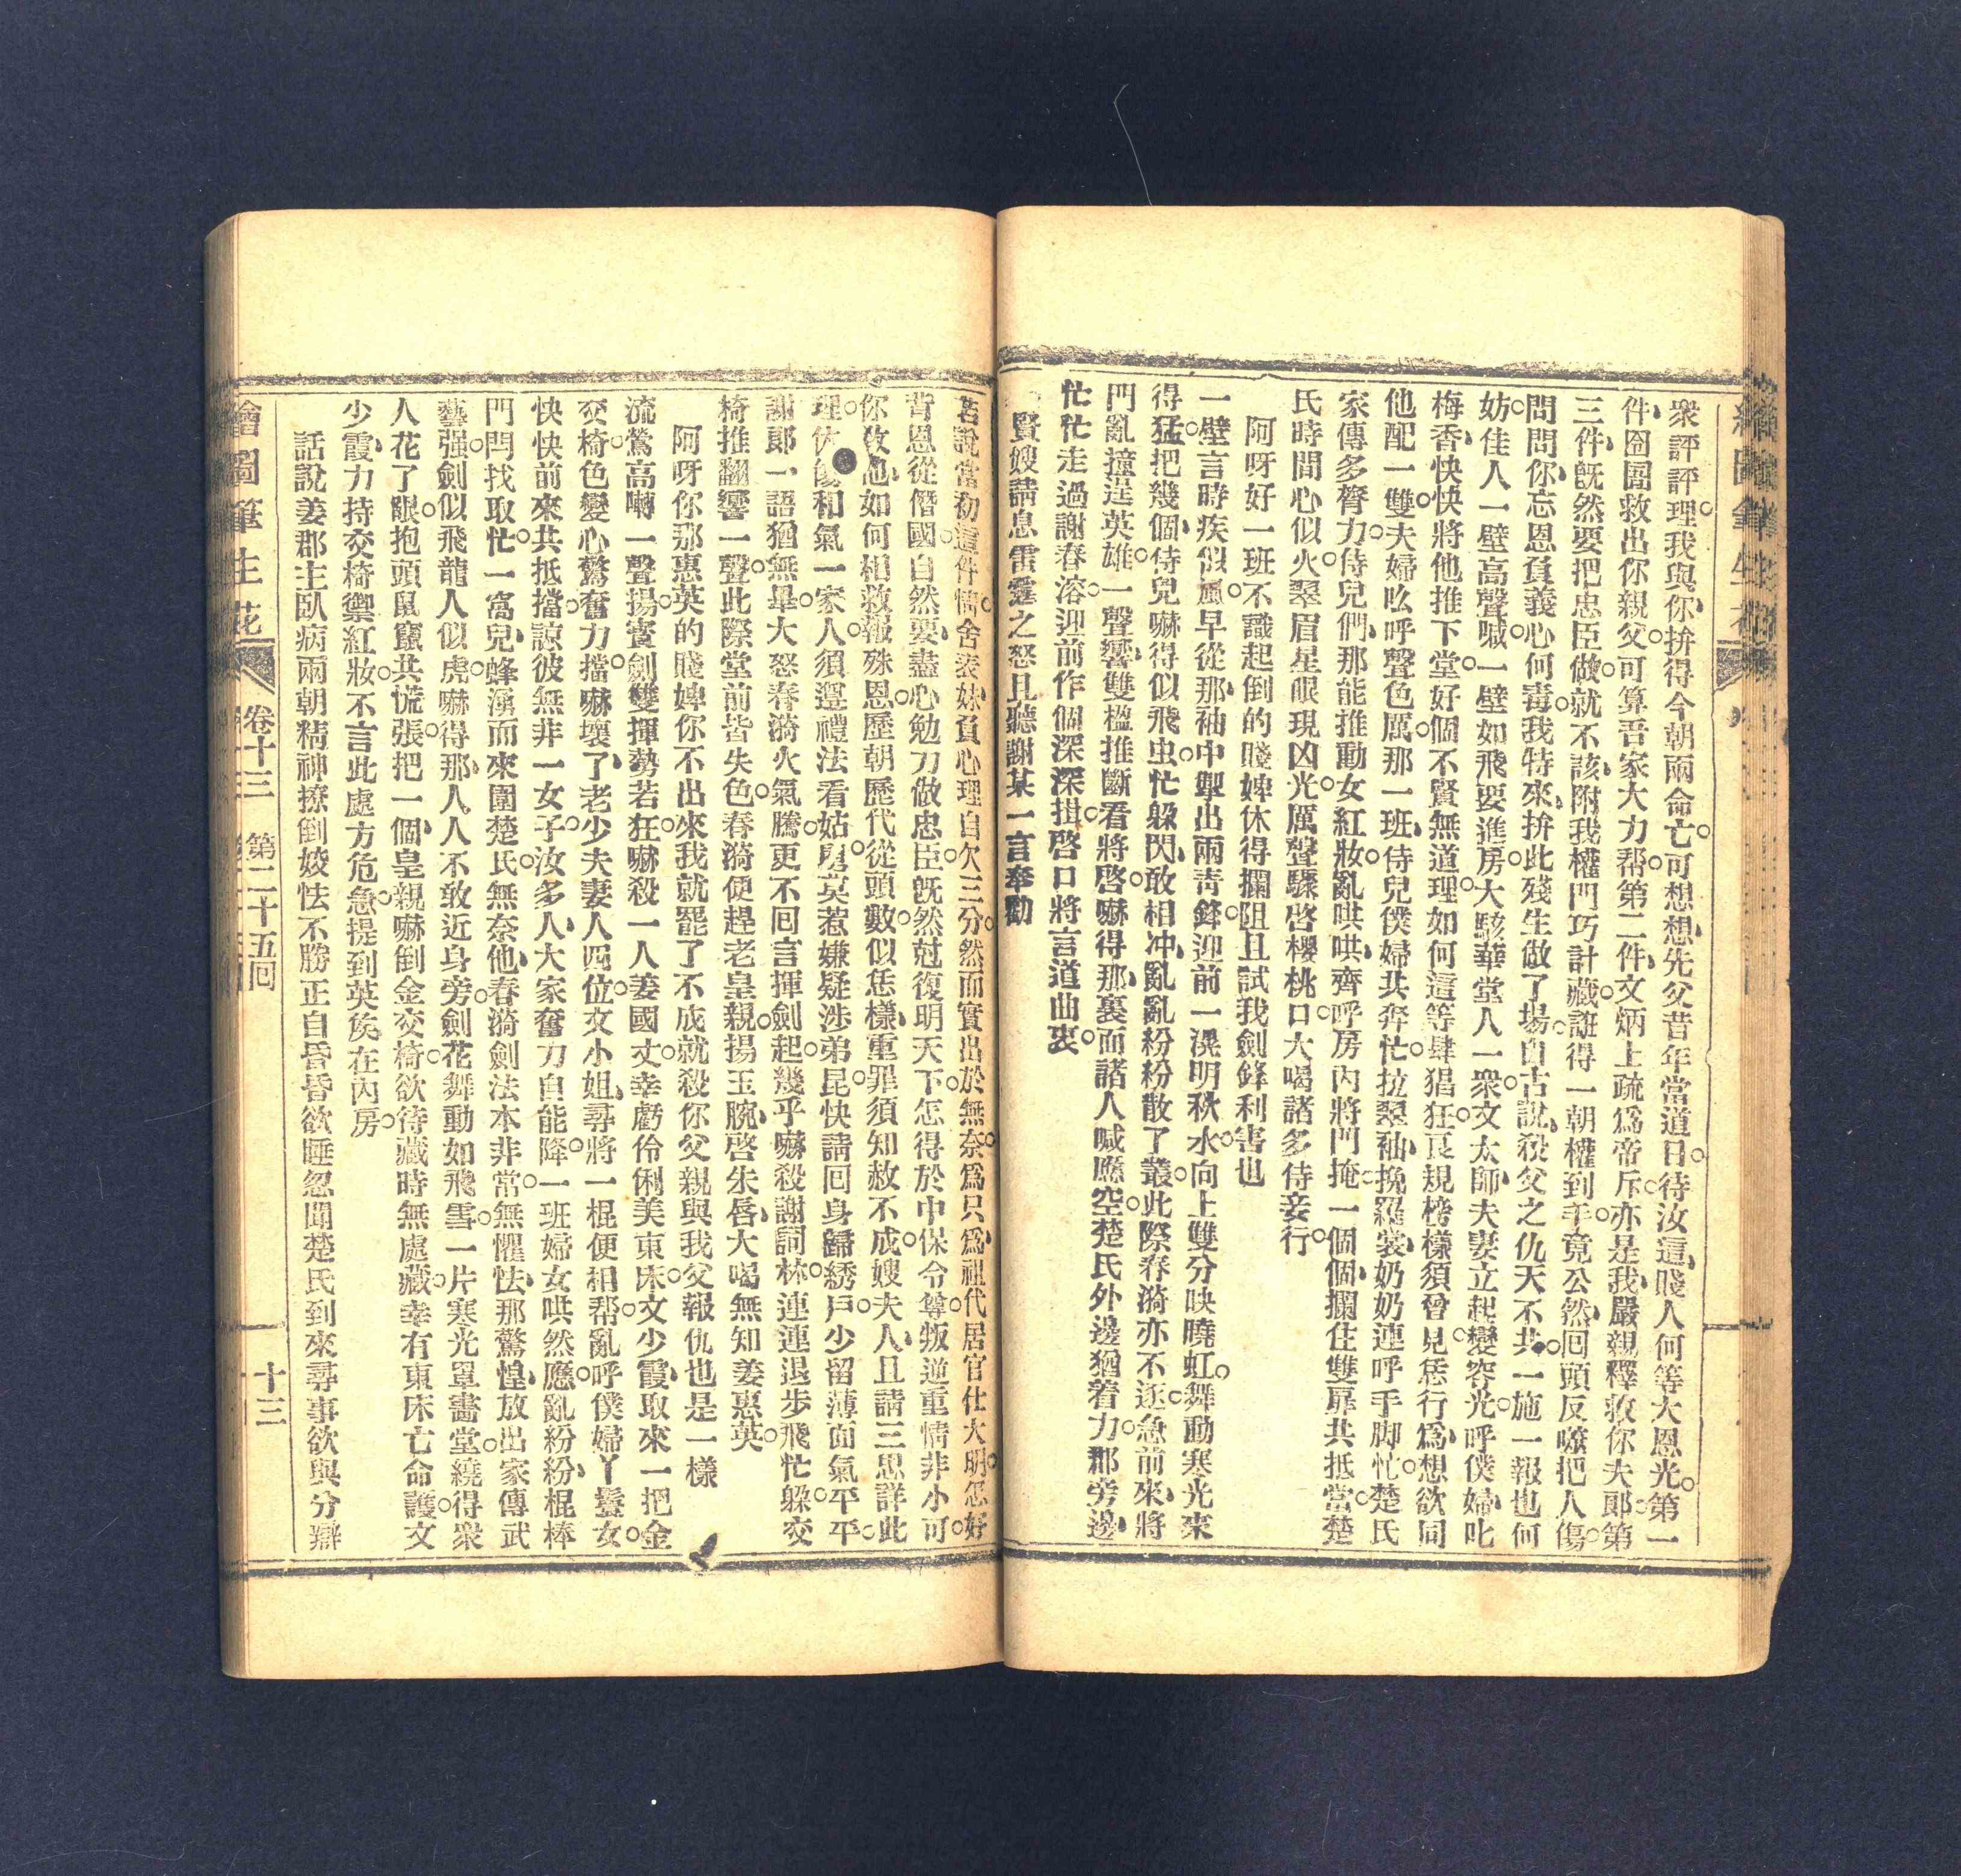 衆評評理我與你拚得今朝兩命亡可想想先父昔年當道日待汝這賤人何等大恩光第一
件囹圄救出你親父可算吾家大力帮第二件文炳上疏爲帝斥亦是我嚴親釋救你夫郎第
三件既然要把忠臣做就不該附我權門巧計藏誑得一朝權到手竟公然回頭反噬把人傷
問問你忘恩負義心何毒我特來拚此殘生做了場自古說殺父之仇天不共一施一報也何
妨佳人一壁高聲喊一壁如飛要進房大駭華堂人一衆文太師夫妻立起變容光呼僕婦叱
梅香快快將他推下堂好個不賢無道理如何這等肆猖狂良規榜樣須曾見恁行爲想欲同
他配一雙夫婦吆呼聲色厲那一班侍兒僕婦共奔忙拉翠袖挽羅裳奶奶連呼手脚忙楚氏
家傳多膂力侍兒們那能推動女紅妝亂哄哄齊呼房內將門掩一個個攔住雙扉共抵當楚
氏時間心似火翠眉星眼現凶光厲聲驟啓櫻桃口大喝諸多侍妾行
阿呀好一班不識起倒的賤婢休得攔阻且試我劍鋒利害也
一壁言時疾似風早從那袖中掣出兩靑鋒迎前一滉明秋水向上雙分映曉虹舞動寒光來
得猛把幾個侍兒嚇得似飛虫忙躲閃敢相冲亂亂紛紛散了叢此際春漪亦不逐急前來將
門亂撞逞英雄一聲響雙楹推斷看將啓嚇得那裏面諸人喊應空楚氏外邊猶着力郡旁邊
忙忙走過謝春溶迎前作個深深揖啓口將言道曲衷
賢嫂請息雷霆之怒且聽謝某一言奉勸
若說當初這件情舍表妹負心理自欠三分然而實出於無奈爲只爲祖代居官仕大明怎好
背恩從僭國自然要盡心勉力做忠臣既然尅復明天下怎得於中保令尊叛逆重情非小可
你敎他如何相救報殊恩歷朝歷代從頭數似恁樣重罪須知赦不成嫂夫人且請三思詳此
理休傷和氣一家人須遵禮法看姑舅莫惹嫌疑涉弟昆快請回身歸綉戶少留薄面氣平平
謝郎一語猶無畢大怒春漪火氣騰更不回言揮劍起幾乎嚇殺謝詞林連連退步飛忙躲交
椅推翻響一聲此際堂前皆失色春漪便趕老皇親揚玉腕啓朱唇大喝無知姜惠英
阿呀你那惠英的賤婢你不出來我就罷了不成就殺你父親與我父報仇也是一樣
流鶯高囀一聲揚寳劍雙揮勢若狂嚇殺一人姜國丈幸虧伶俐美東床文少霞取來一把金
交椅色變心驚奮力擋嚇壞了老少夫妻人四位文小姐尋將一棍便相帮亂呼僕婦丫鬟女
快快前來共抵擋諒彼無非一女子汝多人大家奮力自能降一班婦女哄然應亂紛紛棍棒
門閂找取忙一窩兒蜂湧而來圍楚氏無奈他春漪劍法本非常無懼怯那驚惶放出家傳武
藝强劍似飛龍人似虎嚇得那人人不敢近身旁劍花舞動如飛雪一片寒光罩畵堂繞得衆
人花了眼抱頭鼠竄共慌張把一個皇親嚇倒金交椅欲待藏時無處藏幸有東床亡命護文
少霞力持交椅禦紅妝不言此處方危急提到英矦在內房
話說姜郡主臥病兩朝精神撩倒姣怯不勝正自昏昏欲睡忽聞楚氏到來尋事欲與分辯
繪圖筆生花 卷十三 第二十五回 十三